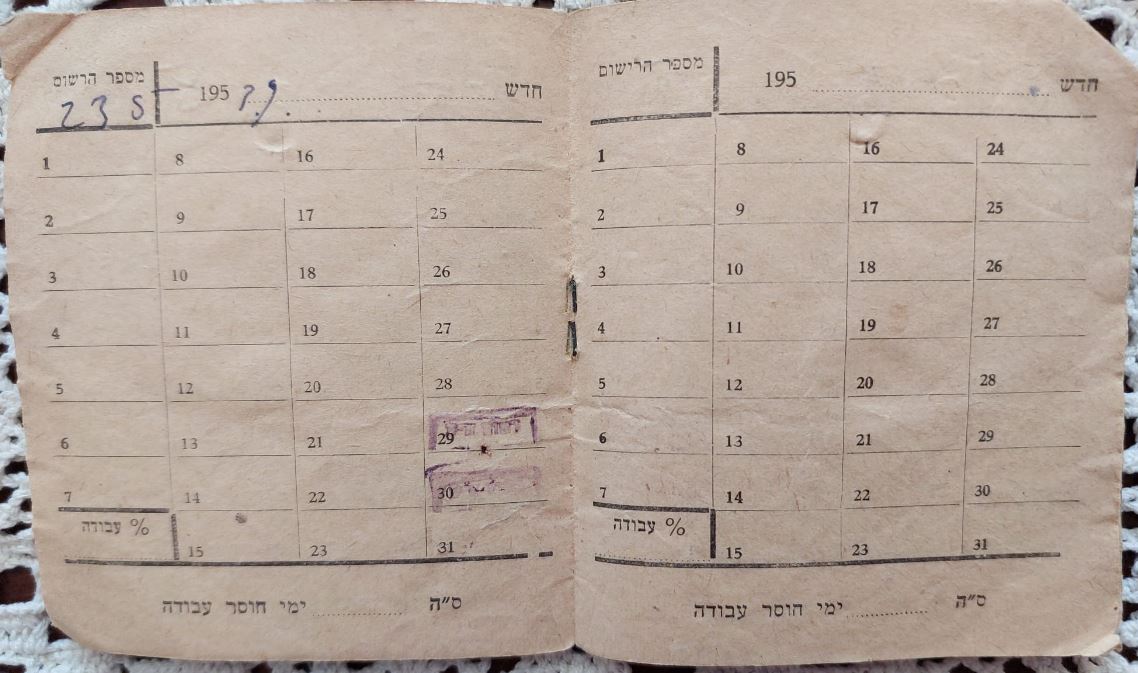 מספר הרשום
235
חדש 195
1 8 16 24
2 9 17 25
3 10 18 26
4 11 19 27
5 12 20 28
6 13 21 29
7 14 22 30
% עבודה
15 23 31
ס״ה ימי חוסר עבודה
מספר הרישום
חדש 195
1 8 16 24
2 9 17 25
3 10 18 26
4 11 19 27
5 12 20 28
6 13 21 29
7 14 22 30
% עבודה
15 23 31
ס״ה ימי חוסר עבודה